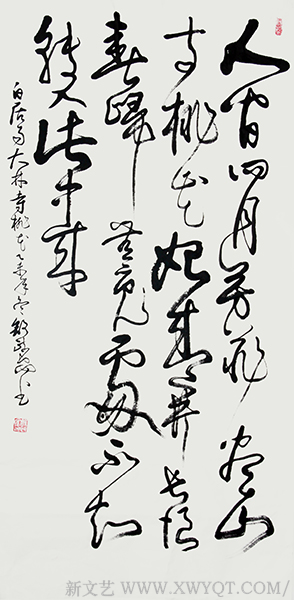 人間四月芳菲盡山
寺桃花始盛開長恨
春歸無覓處不知
轉入此中來
白居易大林寺桃花乙未年冬
新文艺 WWW.XWYQT.COM